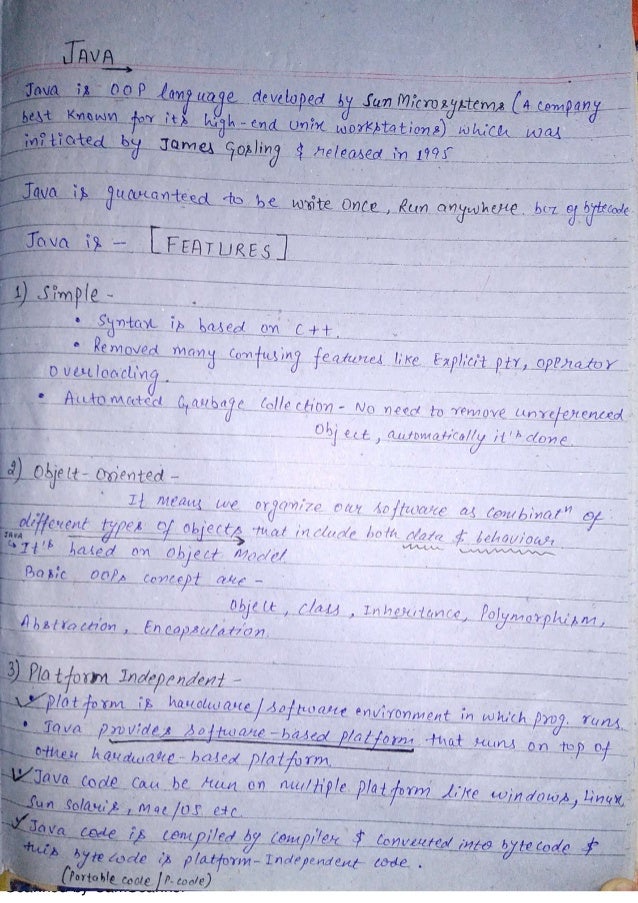 JAVA
Java is OOP language developed by Sun Microsystems (A company
best known for its high-end Unix workstations) which was
initiated by James Gosling & released in 1995
Java is guaranteed to be write once, Run anywhere. bcz of bytecode
Java is - [FEATURES]
1) Simple -
• Syntax is based on C++.
• Removed many confusing features like Explicit ptr, operator
overloading.
• Automated Garbage Collection - No need to remove unreferenced
Object, automatically it's done.
2) Object-Oriented -
It means we organize our software as combinatn of
different types of objects that include both data & behaviour
JAVA
↳ It's based on object Model
Basic OOPs concept are -
Object, class, Inheritance, Polymorphism,
Abstraction, Encapsulation.
3) Platform Independent -
✓ platform is hardware/software environment in which prog. runs.
• Java provides software-based platform that runs on top of
other hardware-based platform.
✓ Java code can be run on multiple platform like windows, Linux,
Sun solaris, Mac/OS etc.
✓ Java code is compiled by compiler & converted into bytecode &
this bytecode is platform-Independent code.
(Portable code / P-code)